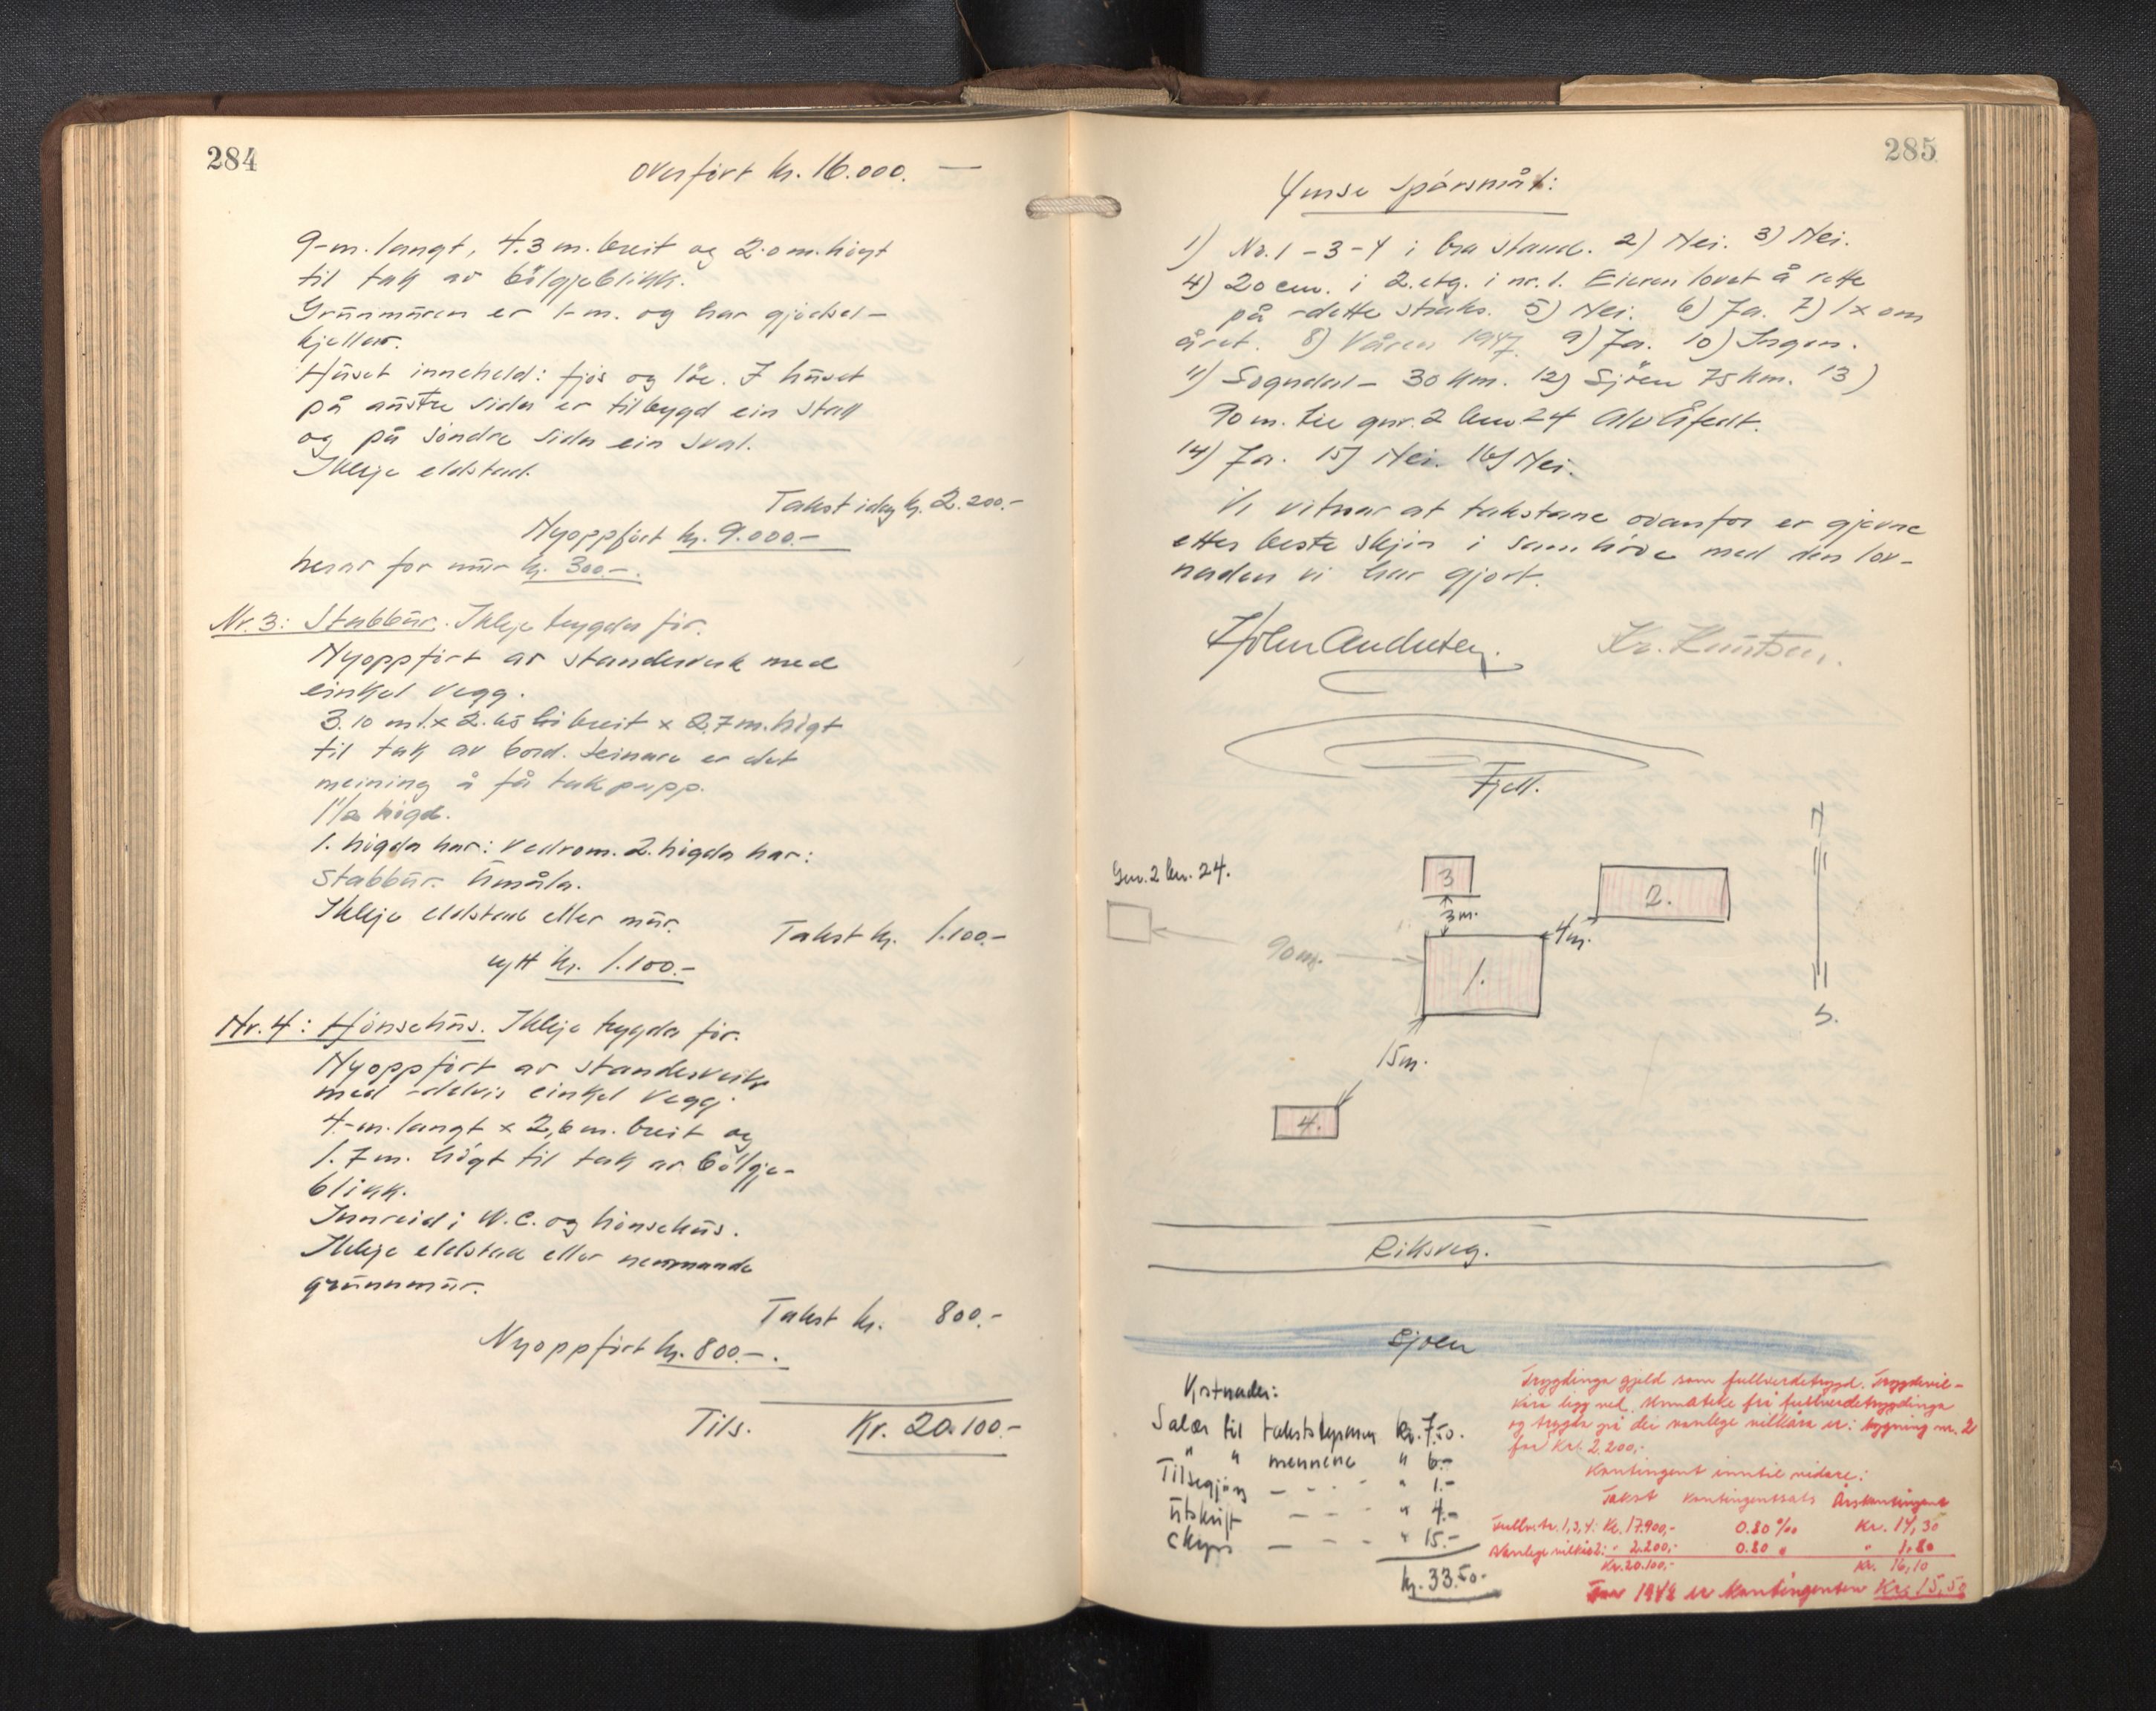 284
Overført kr. 16.000. —
9-m. langt, 4.3 m. breit og 2.0 m. høgt
til tak av bølgjeblikk.
Grunnmuren er 1-m. og har gjødsel-
kjellar.
Huset inneheld: fjøs og løe. I huset
på austre sida er tilbygd ein stall
og på søndre sida ein sval.
Ikkje eldstad.
Takst idag kr. 2.200.-
Nyoppført kr. 9.000.-
herav for mur kr. 300.-.
Nr. 3: Stabbur. Ikkje trygda før.
Nyoppført av standerverk med
einkel vegg.
3.10 m l. x 2.65 breit x 2,7 m. høgt
til tak av bord. Seinare er det
meining å få takpapp.
1 1/2 høgd.
1. høgda har: Vedrom. 2. høgda har:
Stabbur. Umåla.
Ikkje eldstad eller mur.
Takst kr. 1.100.-
nytt kr. 1.100.-
Nr. 4: Hønsehus. Ikkje trygda før.
Nyoppført av standerverk
med -delvis einkel vegg.
4.-m. langt x 2,6 m. breit og
1.7 m. høgt til tak av bølgje-
blikk.
Innreidi W.C. og hønsehus.
Ikkje eldstad eller nemmande
grunnmur.
Takst kr. 800.-
Nyoppført kr. 800.-.
Tils. Kr. 20.100.-
285
Ymse spørsmål:
1) Nr. 1 - 3 - 4 i bra stand. 2) Nei. 3) Nei.
4) 20 cm. i 2. etg. i nr. 1. Eieren lovet å rette
på -dette straks. 5) Nei. 6) Ja. 7) 1 x om
året. 8) Våren 1947. 9) Ja. 10) Ingen.
11) Sogndal - 30 km. 12) Sjøen 75 km. 13)
90 m. til gnr. 2 bnr. 24 Alv Åfedt.
14) Ja. 15) Nei. 16) Nei.
Vi vitnar at takstane ovanfor er gjevne
etter beste skjøn i samhøve med den lov-
naden vi har gjort.
John Andersen. Kr. Knutsen.
Fjell.
N
Gnr. 2 bnr. 24.
3
2.
3 m.
4 m.
90 m.
1.
S.
15 m.
4.
Riksveg.
Sjøen
Kostnader:
Salær til takststyraren kr. 7.50.
" " mennene " 6.-
Tilsegjing — - - - " 1.-
Utskrift — - - " 4.-
Skyss — — - " 15.-
kr. 33.50.-
Trygdinga gjeld som fullverdetrygd. Trygdevil-
kåra ligg ved. Unnateke frå fullverdetrygdinga
og trygda på dei vanlege vilkåra er: bygning nr. 2
for kr. 2.200,-
Kontingent inntil vidare:
Takst Kontingentsats Årskontingent
Fullv. nr. 1, 3, 4: Kr. 17.900,- 0.80 ‰ Kr. 14,30
Vanlege vilkår 2: " 2.200,- 0.80 " " 1,80
Kr. 20.100,- Kr. 16,10
For 1948 er kontingenten Kr. 15,50